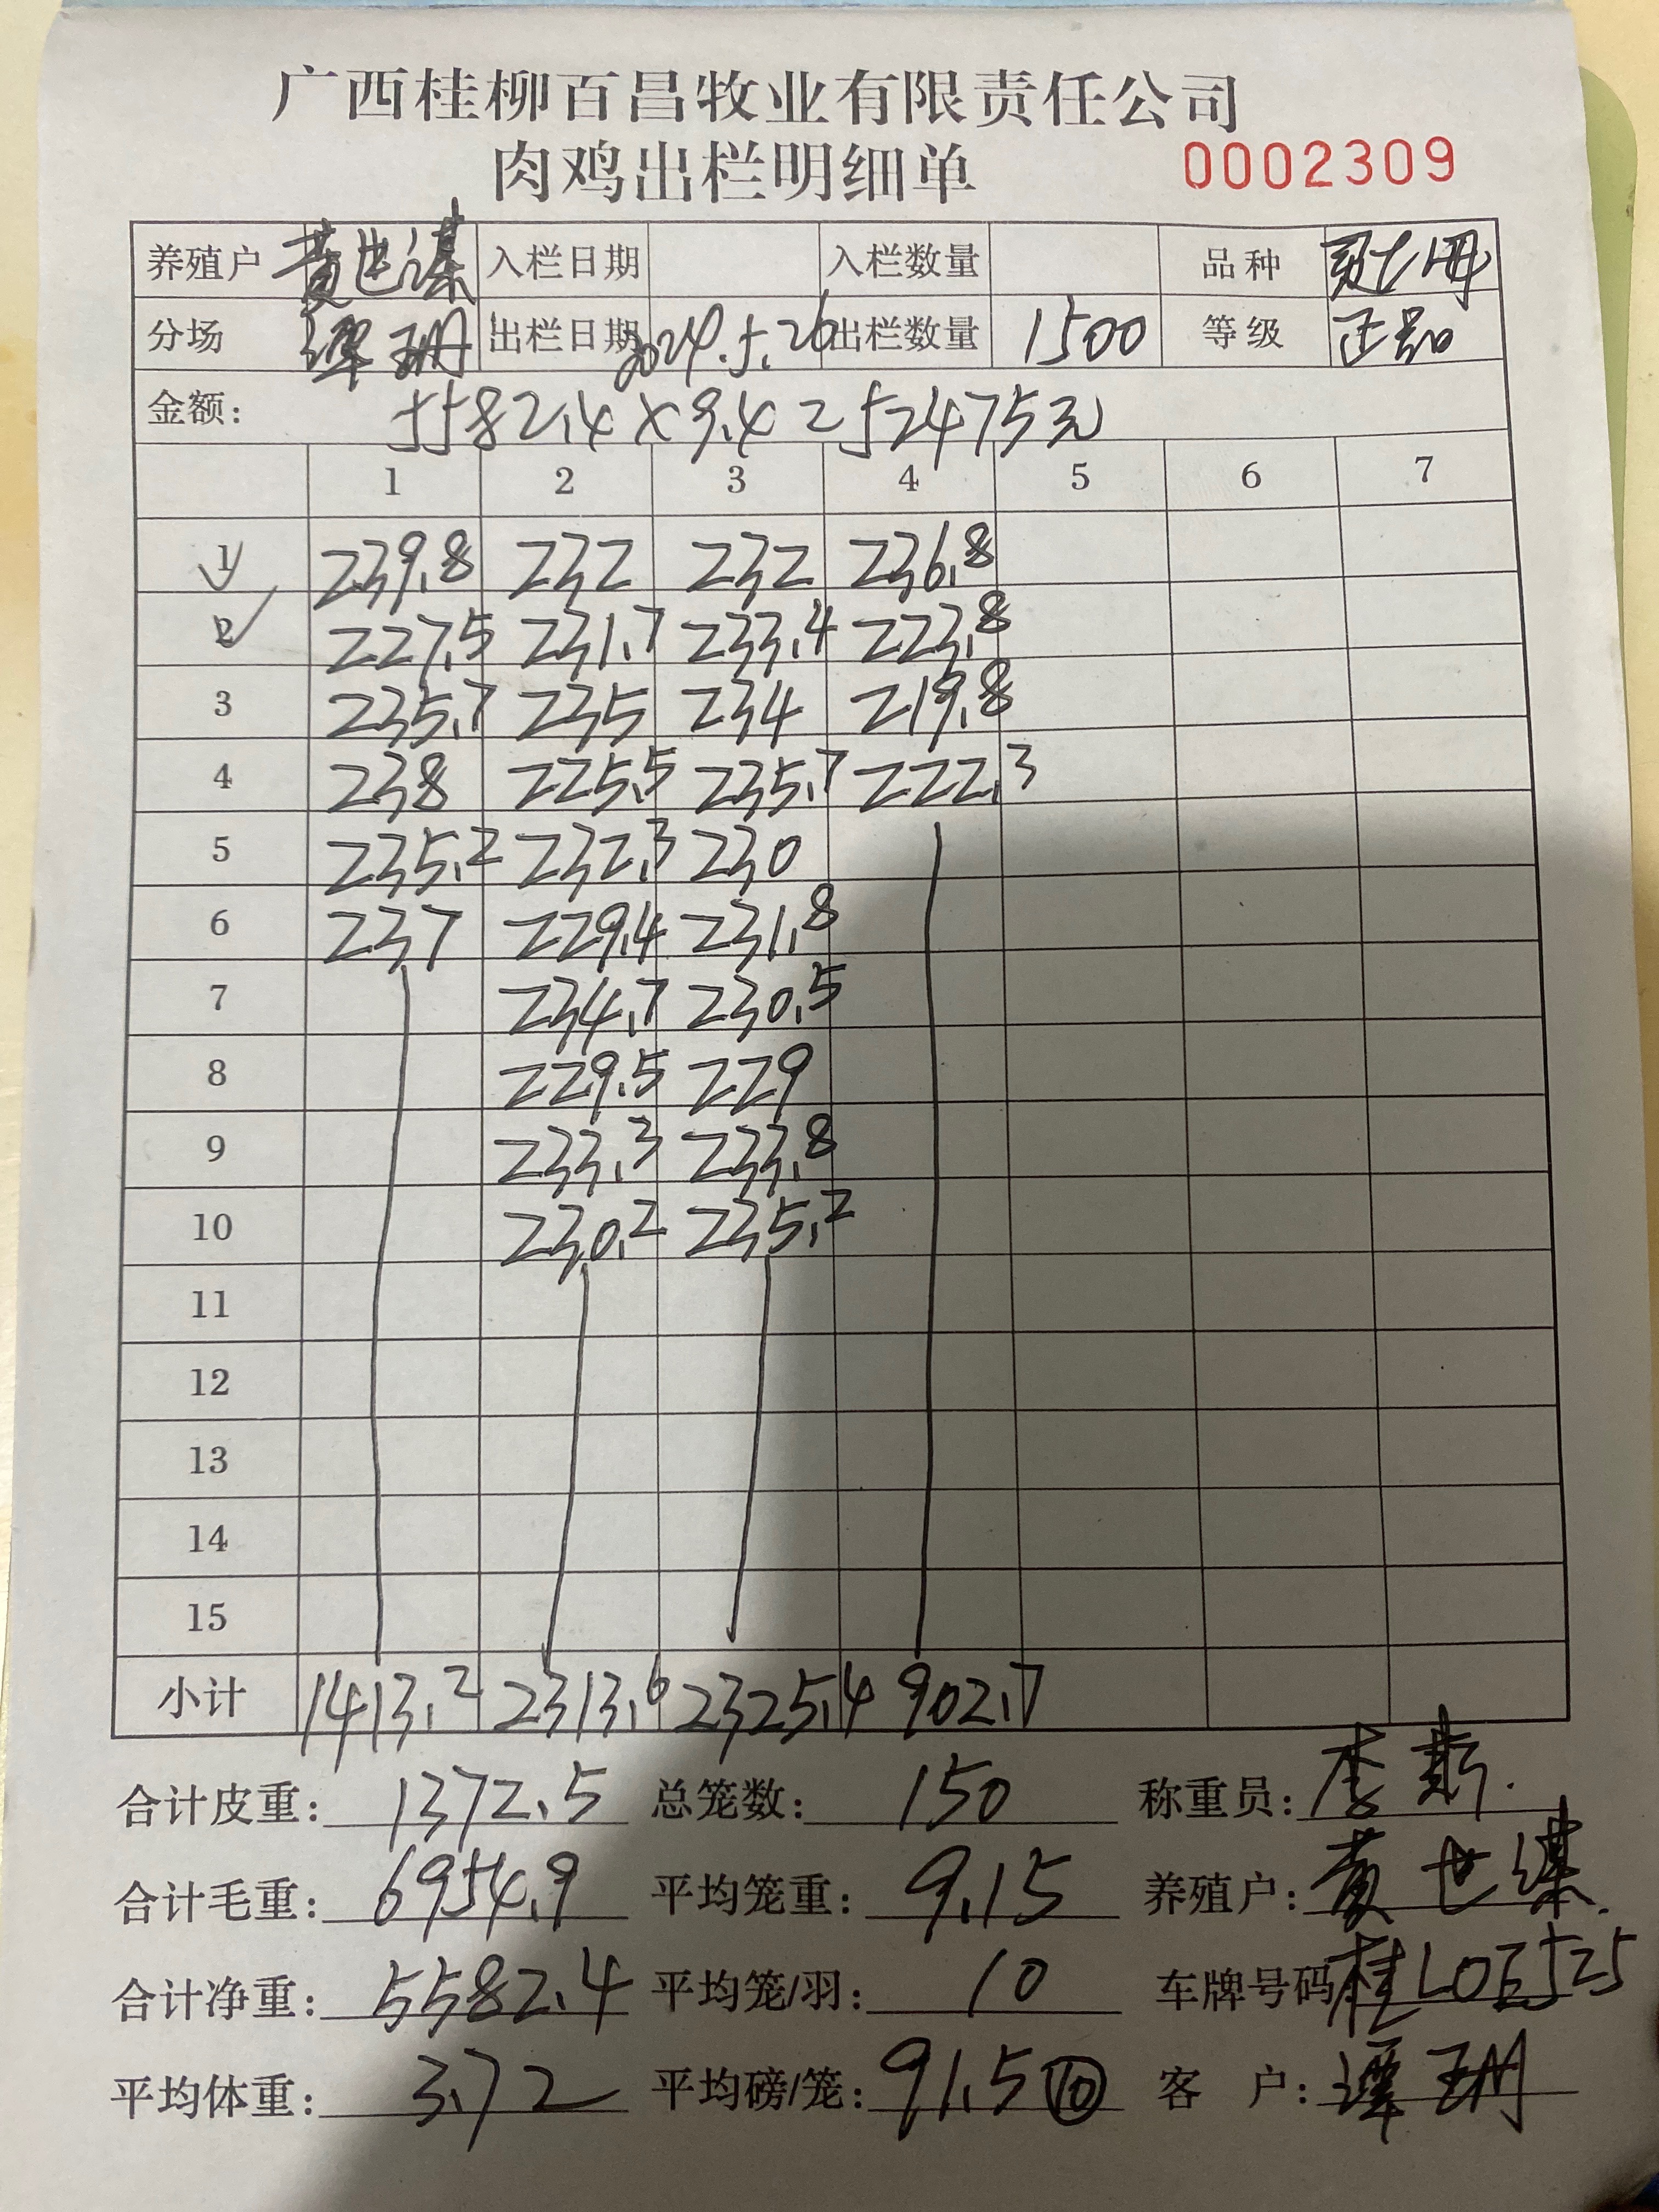 广西桂柳百昌牧业有限责任公司
肉鸡出栏明细单 0002309
养殖户 黄世谋 入栏日期 入栏数量 品种
分场 谭珊 出栏日期 2024.5.26 出栏数量 1500 等级 正品
金额: 5582.4×9.4=52475元
1 2 3 4 5 6 7
1 239.8 232 232 236.8
2 227.5 231.7 233.4 223.8
3 235.7 235 234 219.8
4 238 225.5 235.7 222.3
5 235.2 232.3 230
6 237 229.4 231.8
7 234.7 230.5
8 229.5 229
9 233.3 233.8
10 230.2 235.2
11
12
13
14
15
小计 1413.2 2313.6 2325.4 902.7
合计皮重: 1372.5 总笼数: 150 称重员: 李
合计毛重: 6954.9 平均笼重: 9.15 养殖户: 黄世谋
合计净重: 5582.4 平均笼/羽: 10 车牌号码 桂L0E525
平均体重: 3.72 平均磅/笼: 91.5 ⑩ 客 户: 谭珊